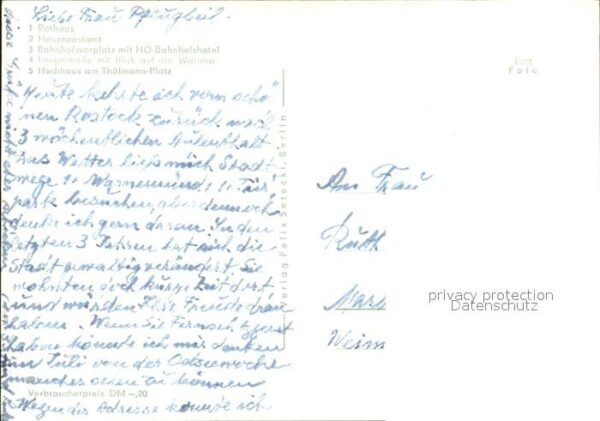 Liebe Frau Pflugbeil.
1 Rathaus
2 Hauptpostamt
3 Bahnhofsvorplatz mit HO-Bahnhofshotel
4 Langestraße mit Blick auf die Warnow
5 Hochhaus am Thälmann-Platz
Heute kehrte ich vom schö-
nen Rostock zurück nach
3 wöchentlichen Aufenthalt
Das Wetter ließ mich Stadt
wege u. Warnemünde u. Tier
park besuchen, aber dennoch
denke ich gern daran. In den
letzten 3 Jahren hat sich die
Stadt gewaltig verändert. Sie
wohnten doch kurze Zeit dort
und würden Ihre Freude dran
haben. Wenn Sie Fernseh
haben könnte ich mir denken
im Juli von der Ostseewoche
manches sehen zu können
Verbraucherpreis DM -,20
Wegen der Adresse konnte ich
Verlag Felix Setecki, Berlin
Echt
Foto
An Frau
Ruth
Weim
privacy protection
Datenschutz